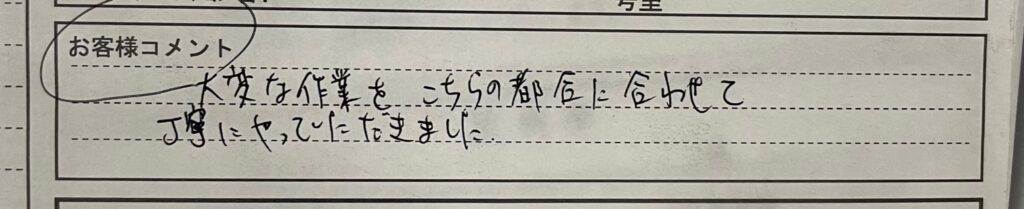 号室
お客様コメント
大変な作業を こちらの都合に合わせて
丁寧にやっていただきました.